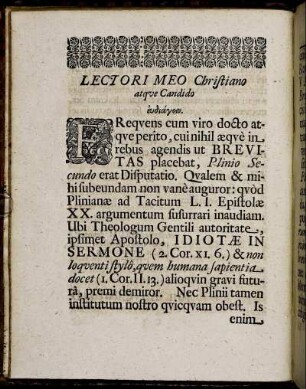 LECTORI MEO Christiano
atqve Candido
FReqvens cum viro docto at-
qve perito, cui nihil æqvè in
rebus agendis ut BREVI-
TAS placebat, Plinio Se-
cundo erat Disputatio. Qvalem & mi-
hi subeundam non vanè auguror: qvòd
Plinianæ ad Tacitum L. I. Epistolæ
XX. argumentum susurrari inaudiam.
Ubi Theologum Gentili autoritate,
ipsimet Apostolo, IDIOTÆ IN
SERMONE (2. Cor. XI. 6.) & non
loqventi stylô, qvem humana sapientia
docet (1. Cor. II. 13.) alioqvin gravi futu-
râ, premi demiror. Nec Plinii tamen
institutum nostro qvicqvam obest. Is
enim